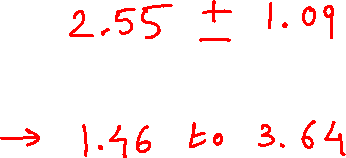 2.55 ± 1.09
→ 1.46 to 3.64